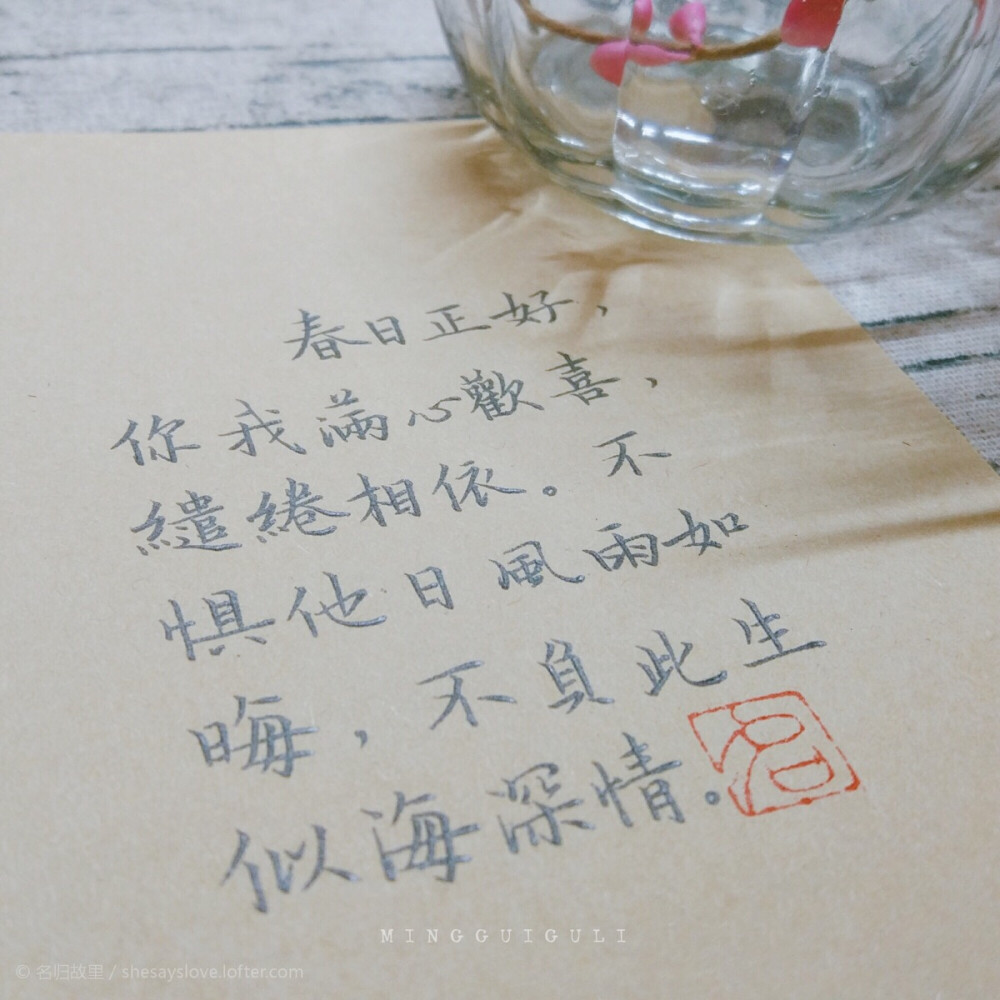 春日正好，
你我滿心歡喜，
繾綣相依。不
惧他日風雨如
晦，不負此生
似海深情。
名
MINGGUIGULI
© 名归故里 / shesayslove.lofter.com